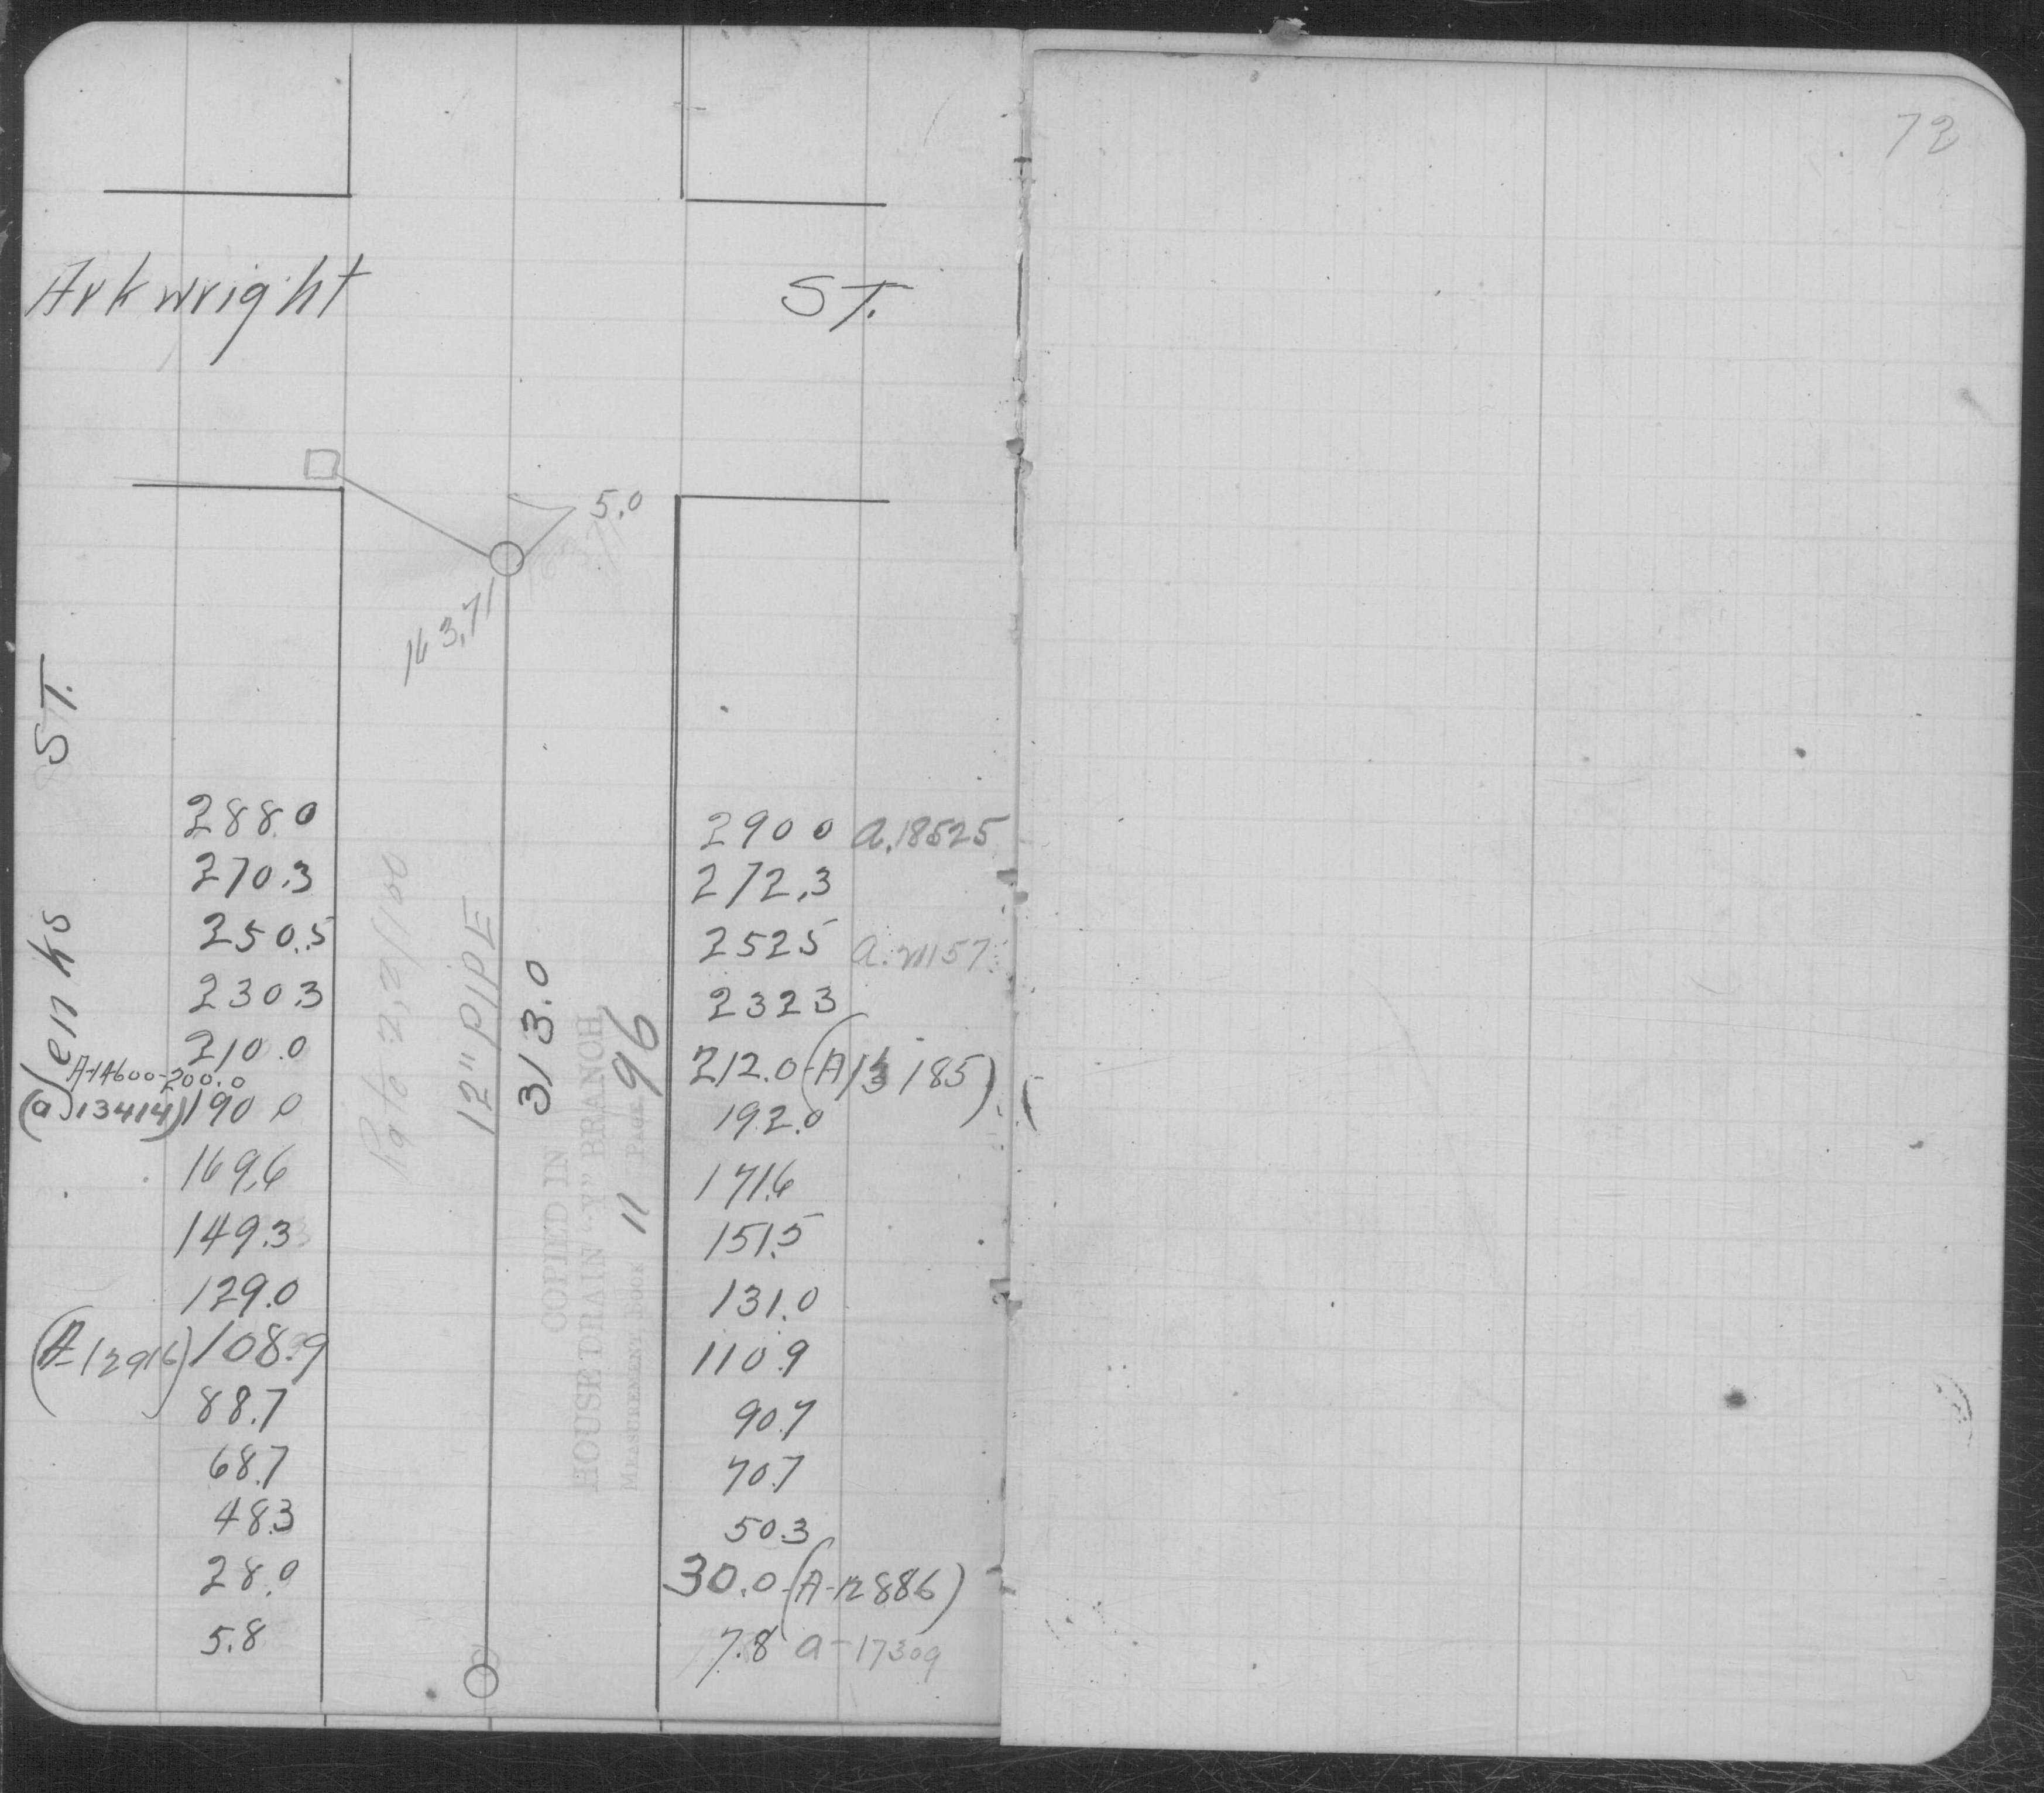 72
Arkwright ST.
5.0
163.71
Jenks ST.
288.0
270.3
250.5
230.3
210.0
A-14600-200.0
(a)13414) 190.0
169.6
149.3
129.0
(A-12916) 108.9
88.7
68.7
48.3
28.0
5.8
12" PIPE
313.0
COPIED IN
HOUSE DRAIN "Y" BRANCH
MEASUREMENT BOOK 11 PAGE 96
290 0 a.18525
272.3
252 5 a.21157
232 3
212.0-(A13185)
192.0
171.6
151.5
131.0
110.9
90.7
70.7
50.3
30.0-(A-12886)
7.8 a-17309